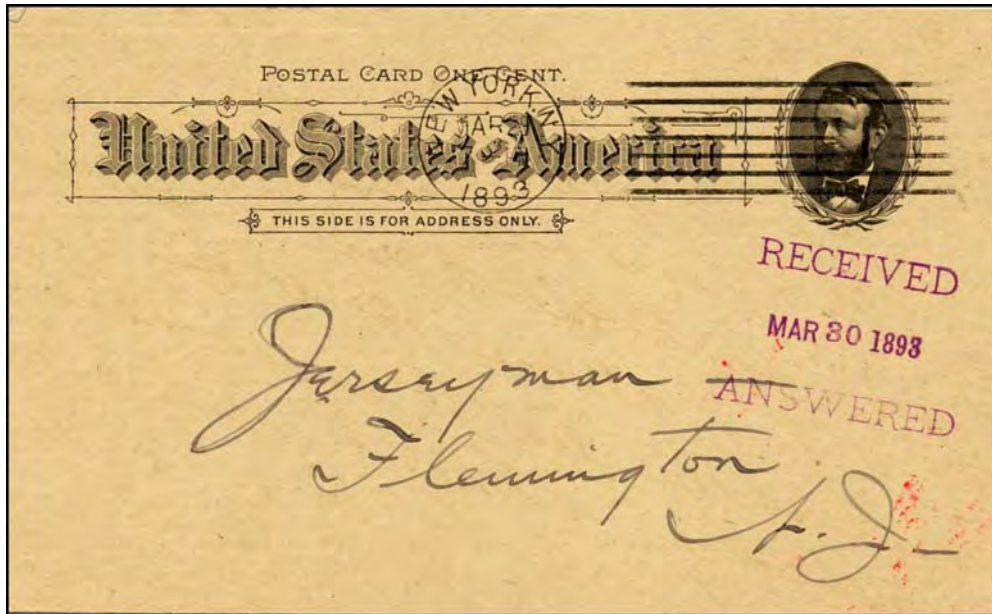 POSTAL CARD ONE CENT.
United States of America
NEW YORK, N.Y.
MAR 29
1893
THIS SIDE IS FOR ADDRESS ONLY.
RECEIVED
MAR 30 1893
ANSWERED
Jerseyman
Flemington
N.J.